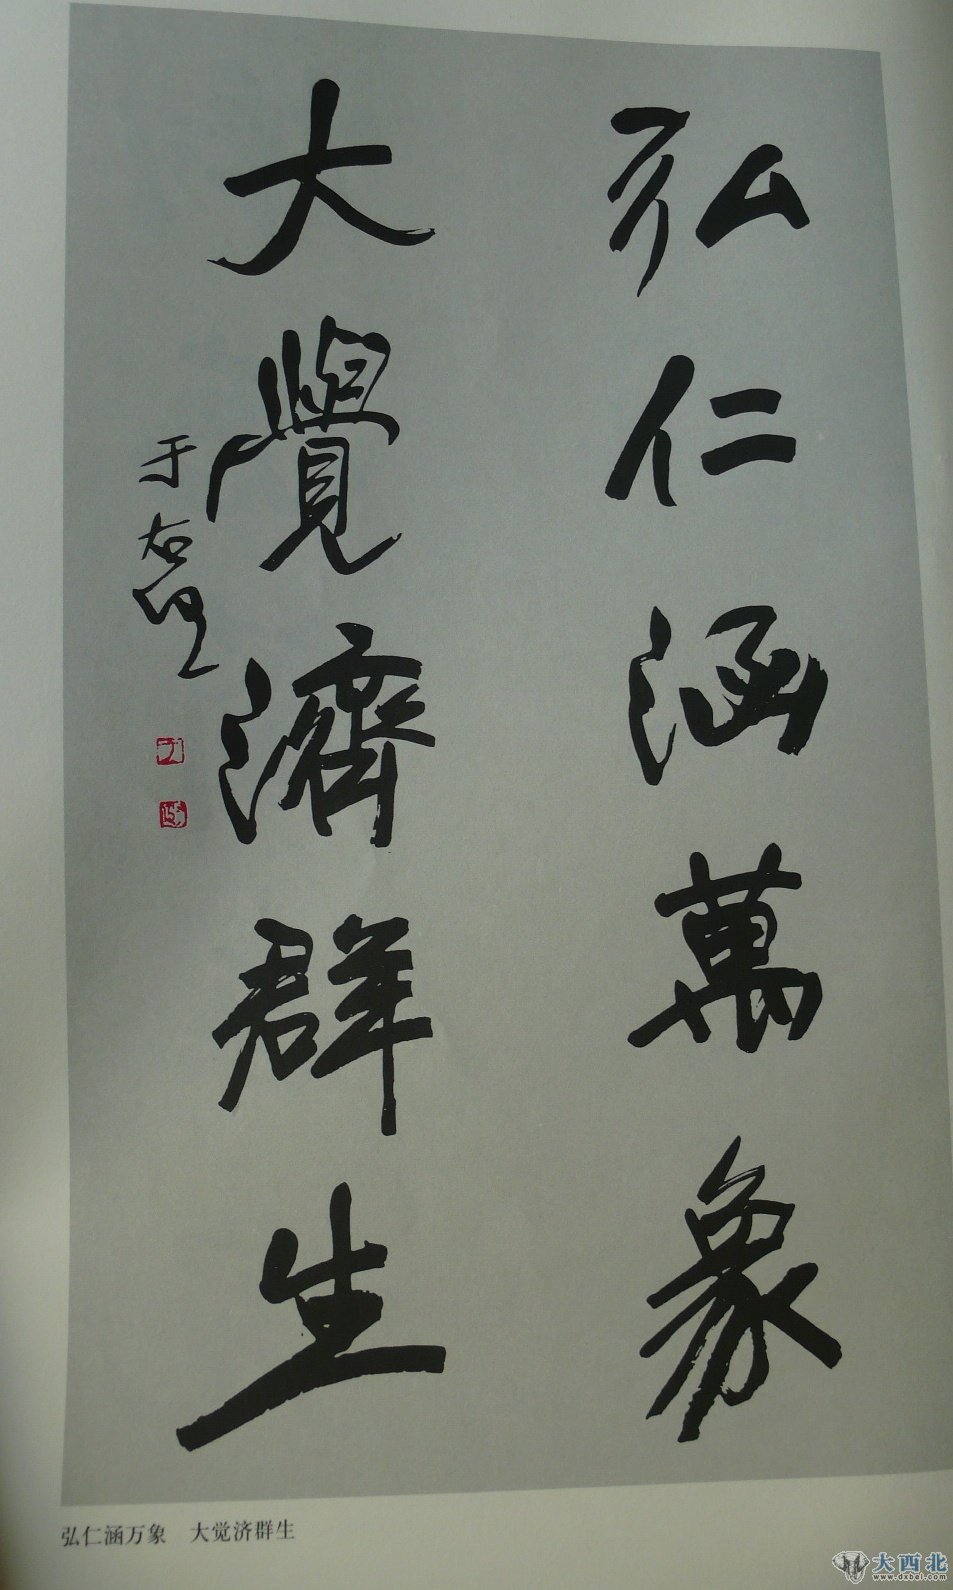 弘仁涵萬象
大覺濟群生
于右任
弘仁涵万象　大觉济群生
大西北
www.dxbei.com